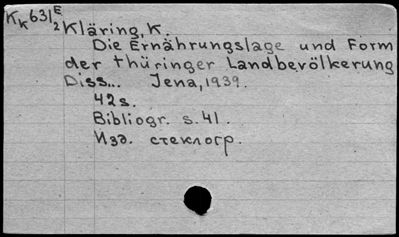 Kk 631 E/2
Kläring, K.
Die Ernährungslage und Form
der thüringer Landbevölkerung
Diss... Jena, 1939.
42 s.
Bibliogr. s. 41.
Изд. стеклогр.